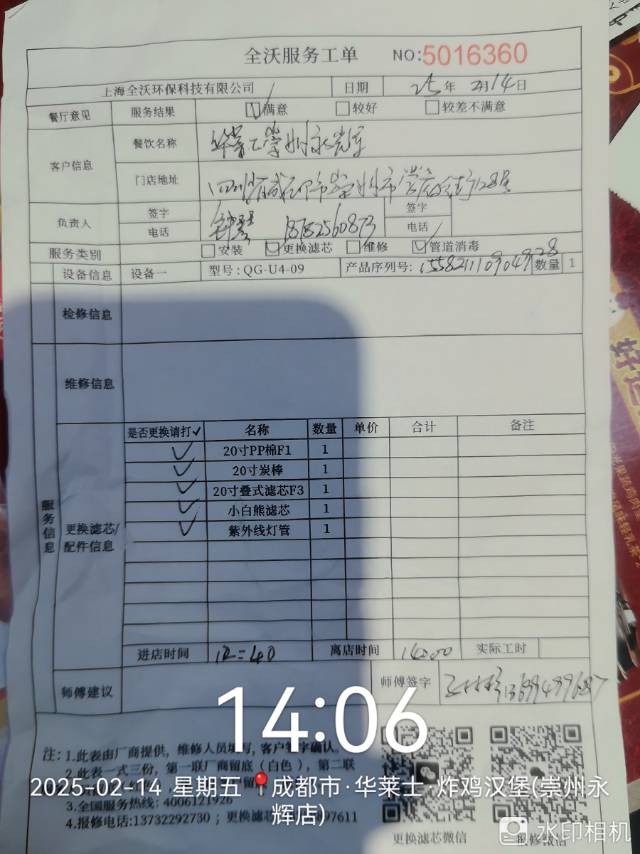 全沃服务工单 NO:5016360
上海全沃环保科技有限公司 日期 25年 2月14日
餐厅意见 服务结果 ☑满意 □较好 □较差不满意
客户信息 餐饮名称
门店地址 四川省成都市崇州市
负责人 签字 签字
电话 18782560873 电话
服务类别 □安装 ☑更换滤芯 □维修 ☑管道消毒
设备信息 设备一 型号:QG-U4-09 产品序列号: 数量 1
检修信息
维修信息
服务信息
更换滤芯/配件信息
是否更换请打✓ 名称 数量 单价 合计 备注
✓ 20寸PP棉F1 1
✓ 20寸炭棒 1
✓ 20寸叠式滤芯F3 1
✓ 小白熊滤芯 1
✓ 紫外线灯管 1
进店时间 12:40 离店时间 14:00 实际工时
师傅建议 师傅签字
14:06
注: 1.此表由厂商提供, 维修人员填写, 客户签字确认。
2.此表一式三份, 第一联厂商留底(白色), 第二联
2025-02-14 星期五 成都市·华莱士·炸鸡汉堡(崇州永辉店)
3.全国服务热线: 4006121926
4.报修电话:13732292730; 更换滤芯
更换滤芯微信
水印相机